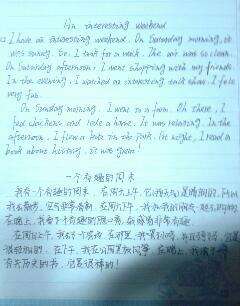 An interesting weekend
I have an interesting weekend. On Saturday morning, it
was sunny. So, I took for a walk. The air was so clean.
On Saturday afternoon, I went shopping with my friends.
In the evening, I watched an interesting talk show. I felt
very fun.
On Sunday morning, I went to a farm. On there, I
fed chickens and rode a horse. It was relaxing. In the
afternoon, I flew a kite in the park. At night, I read a
book about history, it was great!
一个有趣的周末
我有一个有趣的周末，在周六上午，它是晴朗的，所以
我去散步，空气非常新鲜，在周六下午，我和我的朋友去购物
在晚上，我看了个有趣的脱口秀，我感觉非常有趣
在周日上午，我去了农场，在那里，我喂小鸡，并且骑马，它是
很放松的，在下午，我在公园里放风筝，在晚上，我读了一本
有关历史的书，它是很棒的！